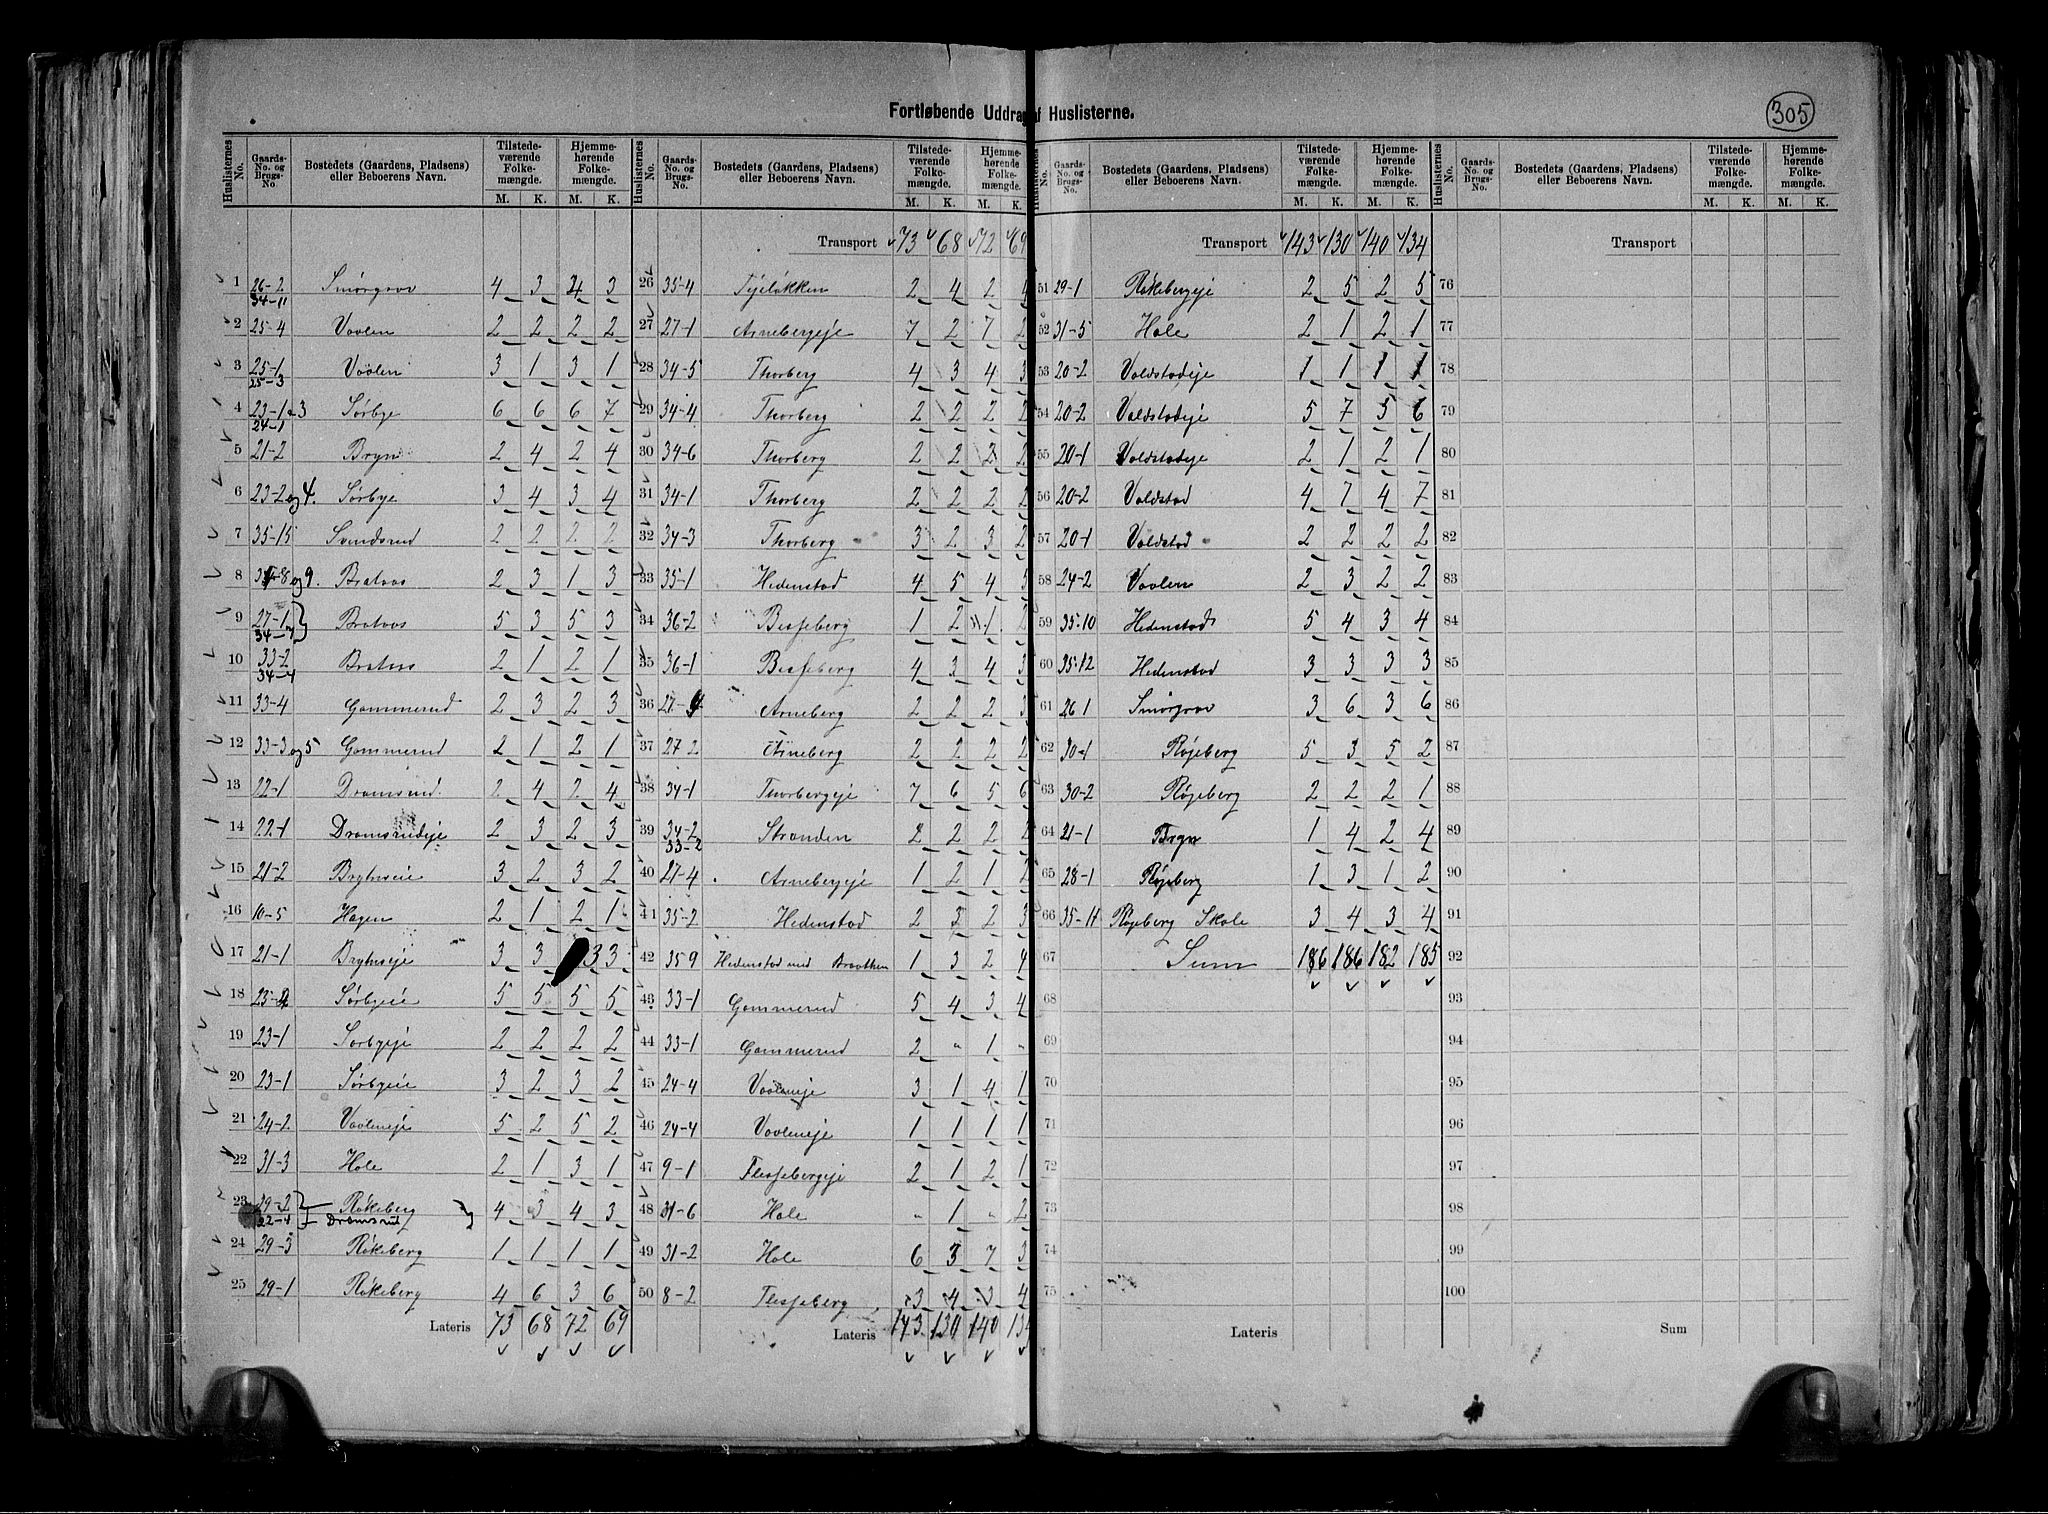 305
Fortløbende Uddrag af Huslisterne.
Huslisternes No. Gaards-No. og Brugs-No. Bostedets (Gaardens, Pladsens) eller Beboerens Navn. Tilstedeværende Folkemængde. M. K. Hjemmehørende Folkemængde. M. K.
1 26-2 34-11 Smørgrav 4 3 4 3
2 25-4 Vaalen 2 2 2 2
3 25-1 25-3 Vaalen 3 1 3 1
4 23-1 & 3 24-1 Sørbye 6 6 6 7
5 21-2 Bryn 2 4 2 4
6 23-2 og 4. Sørbye 3 4 3 4
7 35-15 Svendsrud 2 2 2 2
8 34-8 og 9. Brataas 2 3 1 3
9 27-1 34-7 Brataas 5 3 5 3
10 33-2 34-4 Brataas 2 1 2 1
11 33-4 Gommerud 2 3 2 3
12 33-3 og 5 Gommerud 2 1 2 1
13 22-1 Dramsrud 2 4 2 4
14 22-1 Dramsrudeje 2 3 2 3
15 21-2 Brynseie 3 2 3 2
16 10-5 Hagen 2 1 2 1
17 21-1 Brynseje 3 3 3 3
18 23-2 Sørbyeie 5 5 5 5
19 23-1 Sørbyeje 2 2 2 2
20 23-1 Sørbyeie 3 2 3 2
21 24-2 Vaaleneje 5 2 5 2
22 31-3 Hole 2 1 3 1
23 29-2 22-4 Røkeberg Dramsrud 4 3 4 3
24 29-3 Røkeberg 1 1 1 1
25 29-1 Røkeberg 4 6 3 6
Lateris 73 68 72 69
Huslisternes No. Gaards-No. og Brugs-No. Bostedets (Gaardens, Pladsens) eller Beboerens Navn. Tilstedeværende Folkemængde. M. K. Hjemmehørende Folkemængde. M. K.
Transport 73 68 72 69
26 35-4 Tejeløkken 2 4 2 4
27 27-1 Arnebergeje 7 2 7 2
28 34-5 Thorberg 4 3 4 3
29 34-4 Thorberg 2 2 2 2
30 34-6 Thorberg 2 2 2 2
31 34-1 Thorberg 2 2 2 2
32 34-3 Thorberg 3 2 3 2
33 35-1 Hedenstad 4 5 4 5
34 36-2 Besseberg 1 2 1 2
35 36-1 Besseberg 4 3 4 3
36 27-4 Arneberg 2 2 2 3
37 27-2 Arneberg 2 2 2 2
38 34-1 Thorbergeje 7 6 5 6
39 34-2 33-2 Stranden 2 2 2 2
40 27-4 Arnebergeje 1 2 1 2
41 35-2 Hedenstad 2 3 2 3
42 35 9 Hedenstad med Braathen 1 3 2 4
43 33-1 Gommerud 5 4 3 4
44 33-1 Gommerud 2 " 1 "
45 24-4 Vaaleneje 3 1 4 1
46 24-4 Vaaleneje 1 1 1 1
47 9-1 Flesjebergeje 2 1 2 1
48 31-6 Hole " 1 " 2
49 31-2 Hole 6 3 7 3
50 8-2 Flesjeberg 3 4 3 4
Lateris 143 130 140 134
Huslisternes No. Gaards-No. og Brugs-No. Bostedets (Gaardens, Pladsens) eller Beboerens Navn. Tilstedeværende Folkemængde. M. K. Hjemmehørende Folkemængde. M. K.
Transport 143 130 140 134
51 29-1 Røkebergeje 2 5 2 5
52 31-5 Hole 2 1 2 1
53 20-2 Valdstadeje 1 1 1 1
54 20-2 Valdstadeje 5 7 5 6
55 20-1 Valdstadeje 2 1 2 1
56 20-2 Valdstad 4 7 4 7
57 20-1 Valdstad 2 2 2 2
58 24-2 Vaalen 2 3 2 2
59 35-10 Hedenstad 5 4 3 4
60 35-12 Hedenstad 3 3 3 3
61 26 1 Smørgrav 3 6 3 6
62 30-1 Røjeberg 5 3 5 2
63 30-2 Røjeberg 2 2 2 1
64 21-1 Bryn 1 4 2 4
65 28-1 Røjeberg 1 3 1 2
66 35-11 Røjeberg Skole 3 4 3 4
67 Sum 186 186 182 185
68
69
70
71
72
73
74
75
Lateris
Huslisternes No. Gaards-No. og Brugs-No. Bostedets (Gaardens, Pladsens) eller Beboerens Navn. Tilstedeværende Folkemængde. M. K. Hjemmehørende Folkemængde. M. K.
Transport
76
77
78
79
80
81
82
83
84
85
86
87
88
89
90
91
92
93
94
95
96
97
98
99
100
Sum